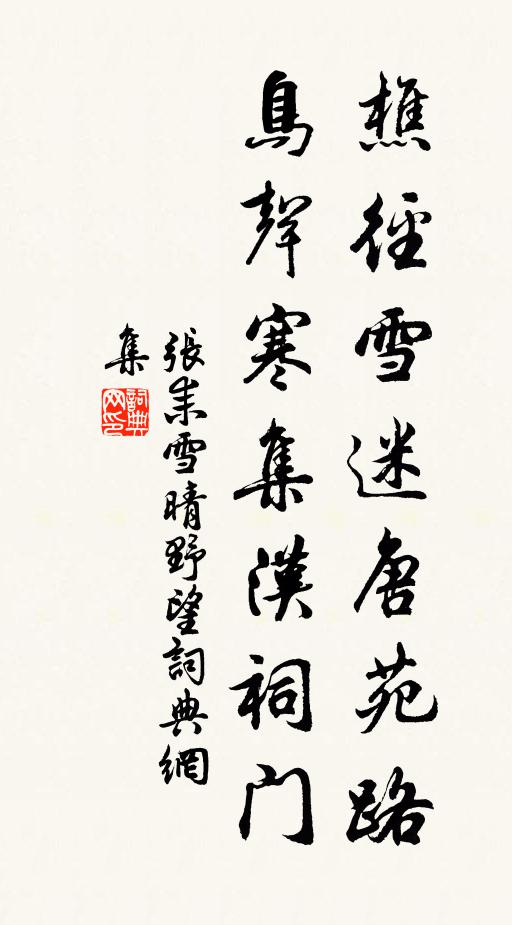 樵徑雪迷唐苑路
鳥聲寒集漢祠門
張耒雪晴野望詞典網
集
詞典
网印